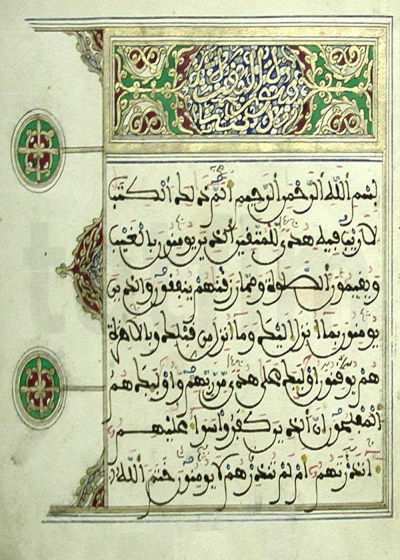 بسم الله الرحمن الرحيم الم ذلك الكتب
لا ريب فيه هدى للمتقين الذين يومنون بالغيب
ويقيمون الصلوة ومما رزقنهم ينفقون والذين
يومنون بما أنزل إليك وما أنزل من قبلك وبالاخرة
هم يوقنون أوليك على هدى من ربهم وأوليك هم
المفلحون إن الذين كفروا سواء عليهم
ءانذرتهم أم لم تنذرهم لا يومنون ختم الله